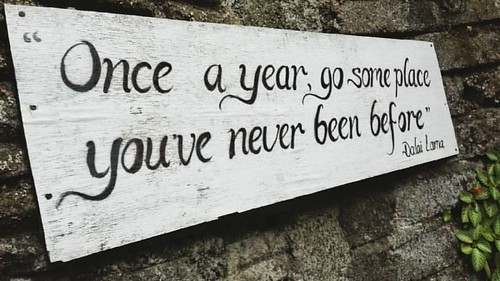 “Once a year, go some place
you've never been before”
-Dalai Lama